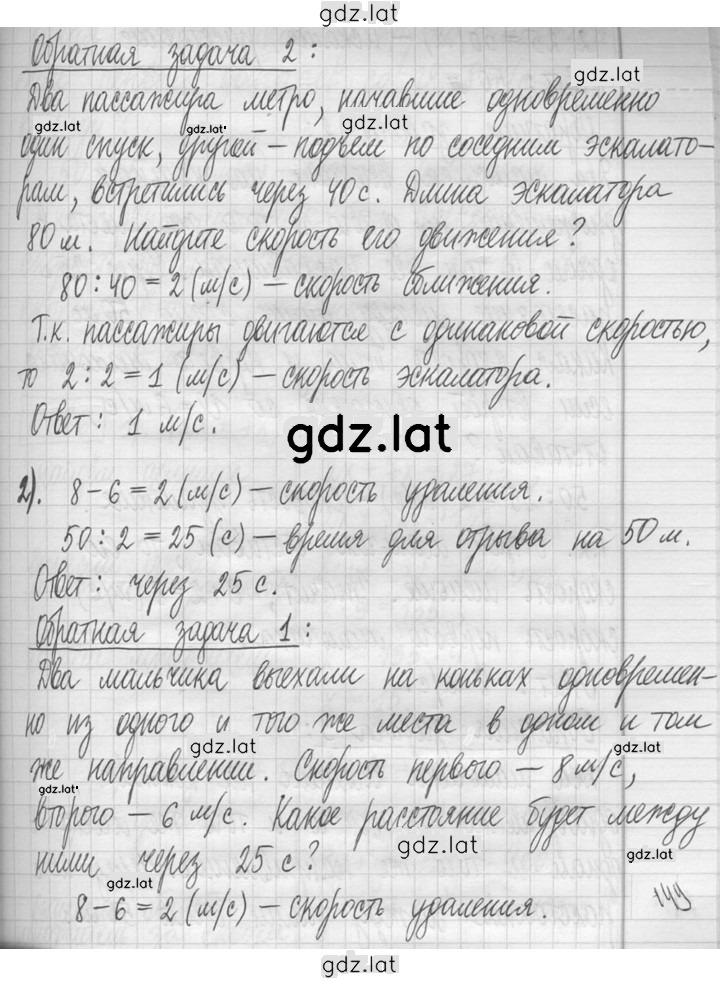 gdz.lat
Обратная задача 2:
gdz.lat
Два пассажира метро, начавшие одновременно
gdz.lat gdz.lat gdz.lat
один спуск, другой – подъем по соседним эскалато-
рам, встретились через 40 с. Длина эскалатора
80 м. Найдите скорость его движения?
80 : 40 = 2 (м/с) – скорость сближения.
Т.к. пассажиры двигаются с одинаковой скоростью,
то 2 : 2 = 1 (м/с) – скорость эскалатора.
Ответ: 1 м/с.
gdz.lat
2). 8 – 6 = 2 (м/с) – скорость удаления.
50 : 2 = 25 (с) – время для отрыва на 50 м.
Ответ: через 25 с.
gdz.lat gdz.lat
Обратная задача 1:
Два мальчика выехали на коньках одновремен-
но из одного и того же места в одном и том
gdz.lat gdz.lat
же направлении. Скорость первого – 8 м/с,
gdz.lat
второго – 6 м/с. Какое расстояние будет между
gdz.lat gdz.lat
ними через 25 с?
gdz.lat
8 – 6 = 2 (м/с) – скорость удаления.
149
gdz.lat